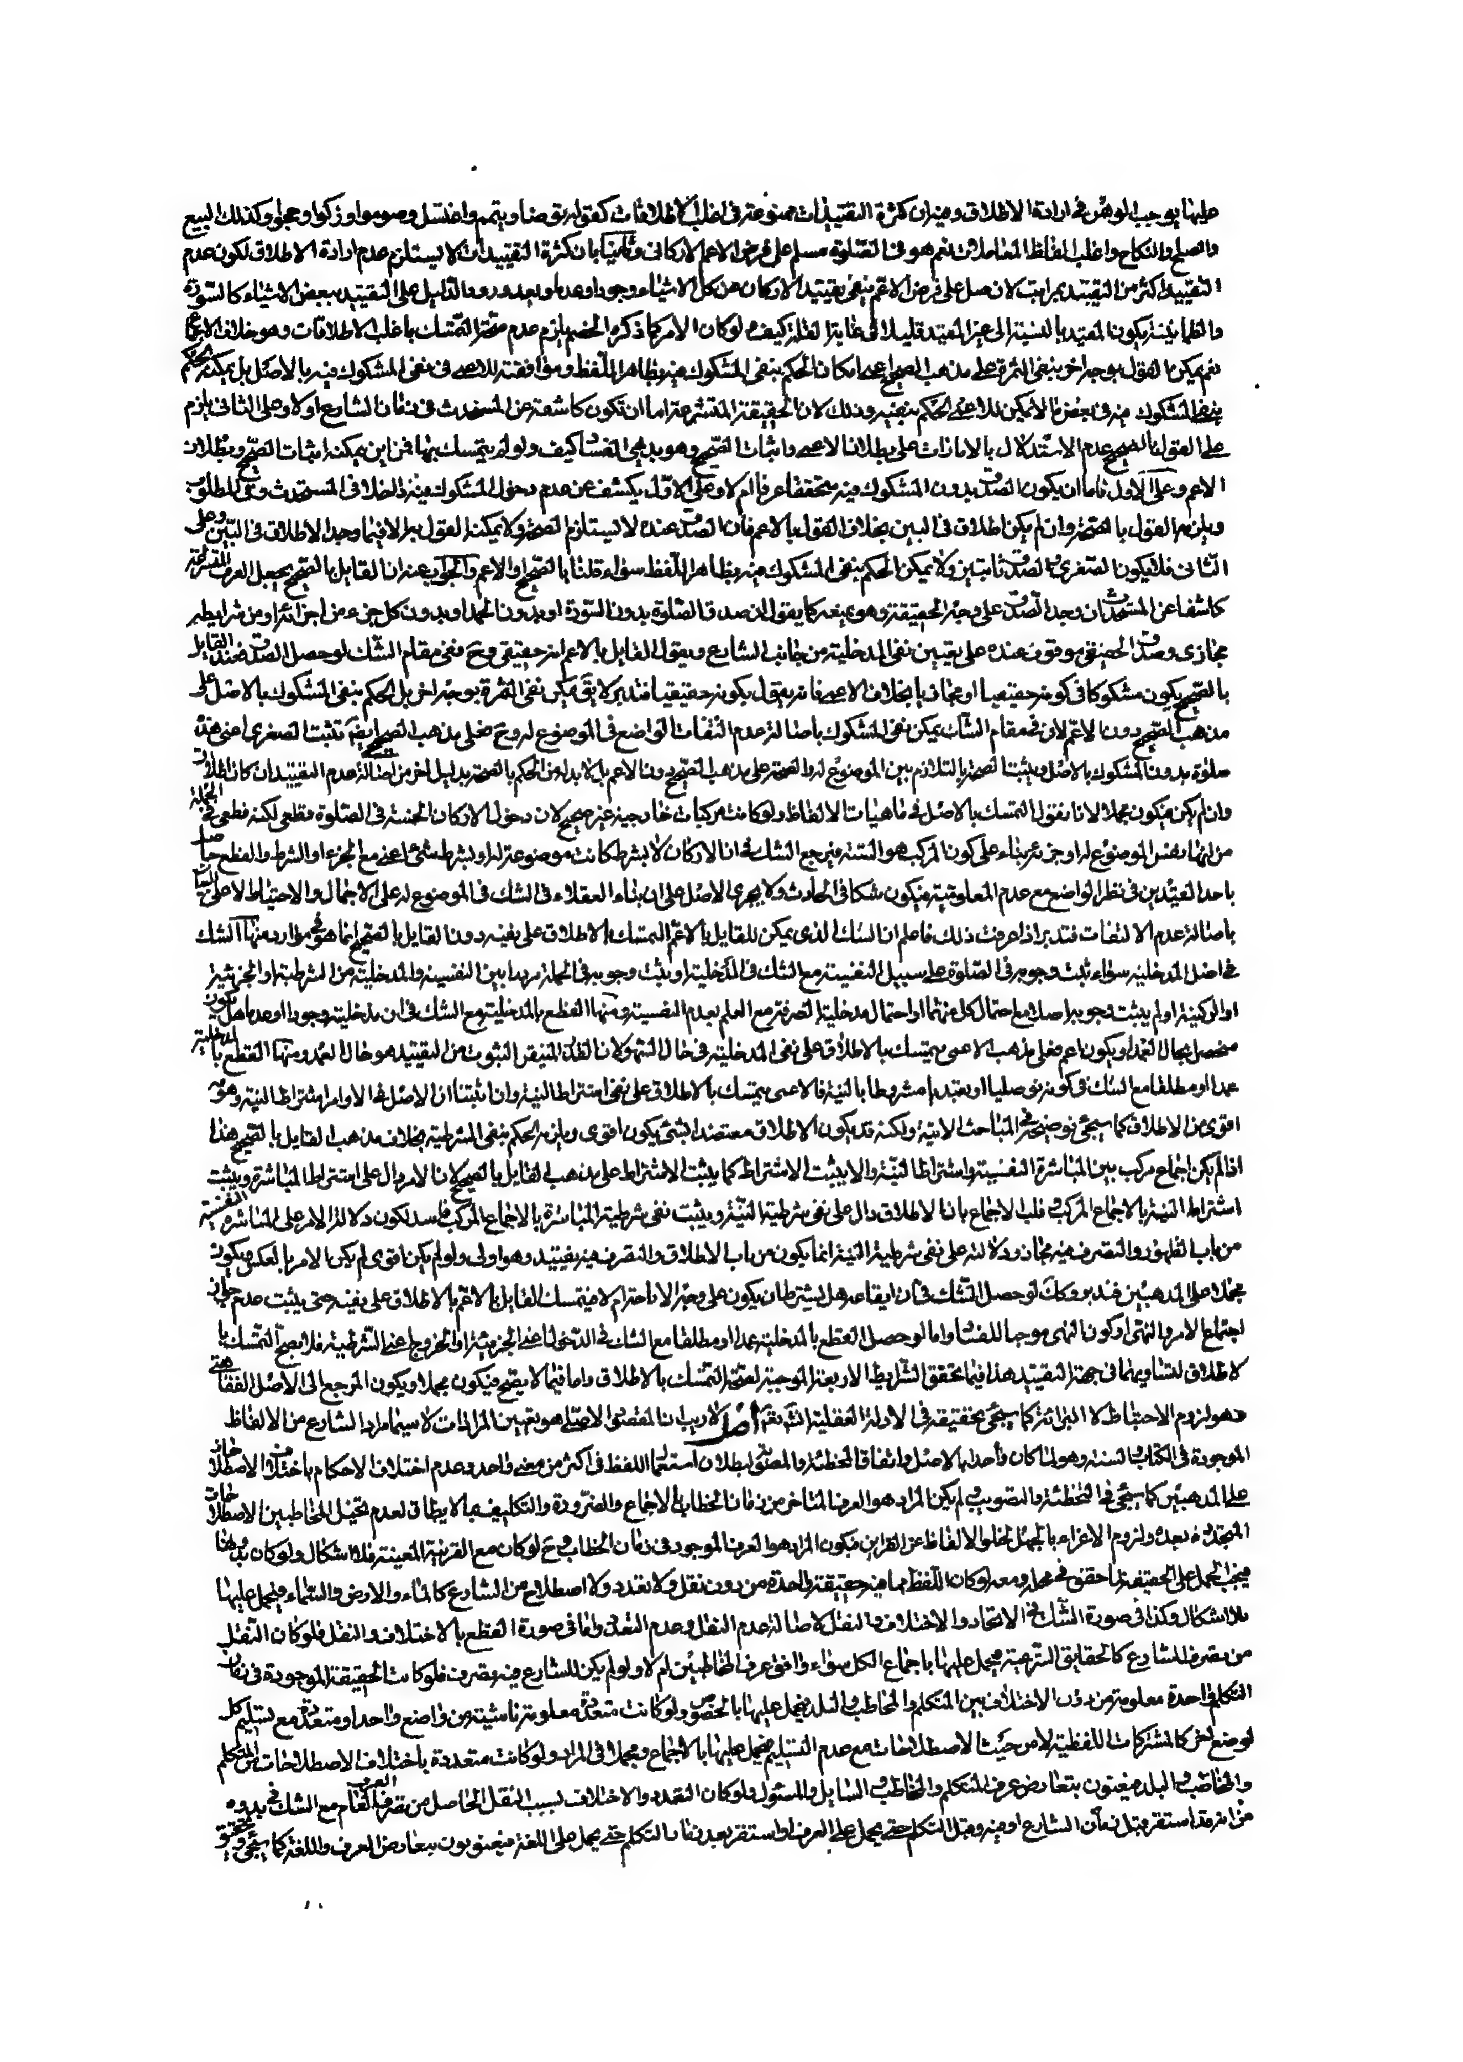 عليها يوجب الوهن فى ارادة الاطلاق وفيه ان كثرة التقييدات ممنوعة فى اغلب الاطلاقات كقوله توضأ ويتمم واغتسل وصوموا وزكوا وحجوا وكذلك البيع
والصلح والنكاح واغلب الفاظ المعاملات نعم هو فى الصلوة مسلم على فرض الاعم الاركانى وثانيا بان كثرة التقييدات لا يستلزم عدم ارادة الاطلاق لكون عدم
التقييد اكثر من التقييد بمراتب لان صل على فرض الاعم ينفى تقييد الاركان عن كل الاشياء وجودا وعدما وبعد ورود الدليل على التقييد ببعض الاشياء كالسورة
والطمانينة يكون المقيد بالنسبة الى غير المقيد قليلا فى غاية القلة كيف ولو كان الامر كما ذكره الخصم يلزم عدم صحة التمسك باغلب الاطلاقات وهو خلاف الاجماع
نعم يمكن القول بوجه اخر بنفى الثمرة على مذهب الصحيح اعنى امكان الحكم بنفى المشكوك فيه بظاهر اللفظ وموافقته للاعمى فى نفى المشكوك فيه بالاصل بل يمكنه الحكم
بنفى المشكوك فيه فى بعض ما لا يمكن للاعمى الحكم بنفيه وذلك لان الحقيقة المتشرعة اما ان تكون كاشفة عن المستحدث فى زمان الشارع اولا وعلى الثانى يلزم
على القول بالصحيح عدم الاستدلال بالامارات على بطلان الاعمى واثبات الصحيح وهو بديهى الفساد كيف ولو لم يتمسك بها فمن اين يمكنه اثبات الصحيح وبطلان
الاعم وعلى الاول فاما ان يكون الصدق بدون المشكوك فيه متحققا عرفا ام لا وعلى الاول يكشف عن عدم دخول المشكوك فيه فى المستحدث وهو المطلوب
ويلزمه القول بالصحة وان لم يكن اطلاق فى البين بخلاف القول بالاعم فان الصدق عنده لا يستلزم الصحة ولا يمكنه القول بها الا فيما وجد الاطلاق فى البين وعلى
الثانى فلا يكون الصغرى والصدق ثابتين ولا يمكن الحكم بنفى المشكوك فيه بظاهر اللفظ سواء قلنا بالصحيح او الاعم والجواب عنه ان القايل بالصحيح يجعل العرف المتشرعة
كاشفا عن المستحدث ان وجد الصدق على وجه الحقيقة وهو يمنعه كما يقول ان صدق الصلوة بدون السورة او بدون الحمد او بدون كل جزء من اجزائها ومن شرايطه
مجازى وصدق الحقيقى موقوف عنده على يقين نفى المدخلية من جانب الشارع ويقول القايل بالاعم انه حقيقى وح ففى مقام الشك لو حصل الصدق فعند القايل
بالصحيح يكون مشكوكا فى كونه حقيقيا او مجازيا بخلاف الاعمى فانه يقول بكونه حقيقيا فتدبر لا يق يمكن نفى الثمرة بوجه اخر بل الحكم بنفى المشكوك بالاصل على
مذهب الصحيح دون الاعم لان فى مقام الشك يمكن نفى المشكوك باصالة عدم التفات الواضع فى الموضوع له وح فعلى مذهب الصحيح ايضا تثبت الصغرى اعنى هذه
صلوة بدون المشكوك بالاصل ويثبت الصحة بالتلازم بين الموضوع له والصحة على مذهب الصحيح دون الاعم بل لا بد له فى الحكم بالصحة بدليل اخر من اصالة عدم التقييد ان كان اطلاق
وان لم يكن فيكون مجملا لانا نقول التمسك بالاصل فى ماهيات الالفاظ ولو كانت مركبات خارجية غير صحيح لان دخول الاركان الخمسة فى الصلوة قطعى لكنه قطعى فى الجملة
من انها نفس الموضوع له او جزئه بناء على كون المركب هو الستة فيرجع الشك فى ان الاركان لا بشرط كانت موضوعة لها او بشرط شئ اعنى مع الجزء او الشرط والقطع حاصل
باحد القيدين فى نظر الواضع مع عدم المعلومية فيكون شكا فى الحادث ولا يجرى الاصل على ان بناء العقلاء فى الشك فى الموضوع له على الاجمال والاحتياط لا على البناء
باصالة عدم الالتفات فتدبر اذا عرفت ذلك فاعلم ان الشك الذى يمكن للقايل بالاعم التمسك بالاطلاق على نفيه دون القايل بالصحيح انما هو فى موارد منها الشك
فى اصل المدخلية سواء ثبت وجوبه فى الصلوة على سبيل النفسية مع الشك فى المدخلية او يثبت وجوبه فى الجملة مرددا بين النفسية والمدخلية من الشرطية او الجزئية
او الركنية او لم يثبت وجوبه اصلا مع احتمال كل منهما او احتمال مدخلية الصرفة مع العلم بعدم النفسية ومنها القطع بالمدخلية مع الشك فى ان مدخليته وجودا او عدما هل يكون
منحصرا بحال العمد او يكون اعم فعلى مذهب الاعمى يتمسك بالاطلاق على نفى المدخلية فى حال السهو لان القدر المتيقن الثبوت من التقييد هو حال العمد ومنها القطع بالمدخلية
عمدا او مطلقا مع الشك فى كونه توصليا او تعبديا مشروطا بالنية فالاعمى يتمسك بالاطلاق على نفى اشتراط النية وان اثبتنا ان الاصل فى الاوامر اشتراط النية وهو
اقوى من الاطلاق كما سيجئ توضيحه فى المباحث الاتية ولكنه قد يكون الاطلاق معتضدا بشئ يكون اقوى ويلزمه الحكم بنفى الشرطية بخلاف مذهب القايل بالصحيح هذا
اذا لم يكن اجماع مركب بين المباشرة النفسية واشتراط النية والا يثبت الاشتراط كما يثبت الاشتراط على مذهب القايل بالصحيح لان الامر دال على اشتراط المباشرة ويثبت
اشتراط النية بالاجماع المركب وقلب الاجماع بان الاطلاق دال على نفى شرطية النية ويثبت نفى شرطية المباشرة بالاجماع المركب فاسد لكون دلالة الامر على المباشرة النفسية
من باب الظهور والتصرف فيه مجاز ودلالته على نفى شرطية النية انما يكون من باب الاطلاق والتصرف فيه تقييد وهو اولى ولو لم يكن اقوى لم يكن الامر بالعكس فيكون
مجملا على المذهبين فتدبر وكك لو حصل الشك فى ان ايقاعه هل يشترط ان يكون على وجه الاباحة ام لا فيتمسك القايل بالاعم بالاطلاق على نفيه حتى يثبت عدم جواز
اجتماع الامر والنهى او كون النهى موجبا للفساد واما لو حصل القطع بالمدخلية عمدا او مطلقا مع الشك فى الدخول اعنى الجزئية او الخروج اعنى الشرطية فلا يصح التمسك با
لاطلاق لتساويهما فى جهة التقييد هذا فيما تحقق الشرايط الاربعة الموجبة لصحة التمسك بالاطلاق واما فيما لا يصح فيكون مجملا ويكون المرجع الى الاصل الفقاهتى
وهو لزوم الاحتياط لا البرائة كما سيجئ تحقيقه فى الادلة العقلية انشاء الله تعالى اصل لا ريب ان المقصود الاصلى هو تعيين المرادات لا سيما مراد الشارع من الالفاظ
الموجودة فى الكتاب والسنة وهو لما كان واحدا بالاصل واتفاق المخطئة والمصوبة لبطلان استعمال اللفظ فى اكثر من معنى واحد وعدم اختلاف الاحكام باختلاف الاصطلاحات
على المذهبين كما سيجئ فى التخطئة والتصويب لم يكن المراد هو العرف المتاخر من زمان الخطاب بالاجماع والضرورة والتكليف بما لا يطاق لعدم تحمل المخاطبين الاصطلاحات
المتجددة بعده ولزوم الاغراء بالجهل لخلو الالفاظ عن القراين فيكون المراد هو العرف الموجود فى زمان الخطاب وح لو كان مع القرينة المعينة فلا اشكال ولو كان بدونها
فيجب الحمل على الحقيقة لما حقق فى محله ومعه لو كان اللفظ مما فيه حقيقة واحدة من دون نقل ولا تعدد ولا اصطلاح من الشارع كالماء والارض والسماء فيحمل عليها
بلا اشكال وكذا فى صورة الشك فى الاتحاد والاختلاف والنقل لاصالة عدم النقل وعدم التعدد واما فى صورة القطع بالاختلاف والنقل فلو كان النقل
من تصرف الشارع كالحقايق الشرعية فيحمل عليها باجماع الكل سواء وافق عرف المخاطبين ام لا ولو لم يكن للشارع فيه تصرف فلو كانت الحقيقة الموجودة فى زمان
التكلم واحدة معلومة من دون الاختلاف بين المتكلم والمخاطب والبلد فيحمل عليها بالخصوص ولو كانت متعددة معلومة ناشئة من واضع واحد او متعددة مع تسليم كل
لوضع اخر كالمشتركات اللفظية لا من حيث الاصطلاحات مع عدم التسليم فيحمل عليها بالاجماع ومجملا فى المراد ولو كانت متعددة باختلاف الاصطلاحات من المتكلم
والمخاطب والبلد فيعنون بتعارض عرف المتكلم والمخاطب والسايل والمسئول ولو كان التعدد والاختلاف بسبب النقل الحاصل من تصرف العرف العام مع الشك فى بدوه
من انه قد استقر قبل زمان الشارع او فيه وقبل التكلم حتى يحمل على العرف او استقر بعد زمان التكلم حتى يحمل على اللغة فيعنونون بتعارض العرف واللغة كما سيجئ تحقيقه